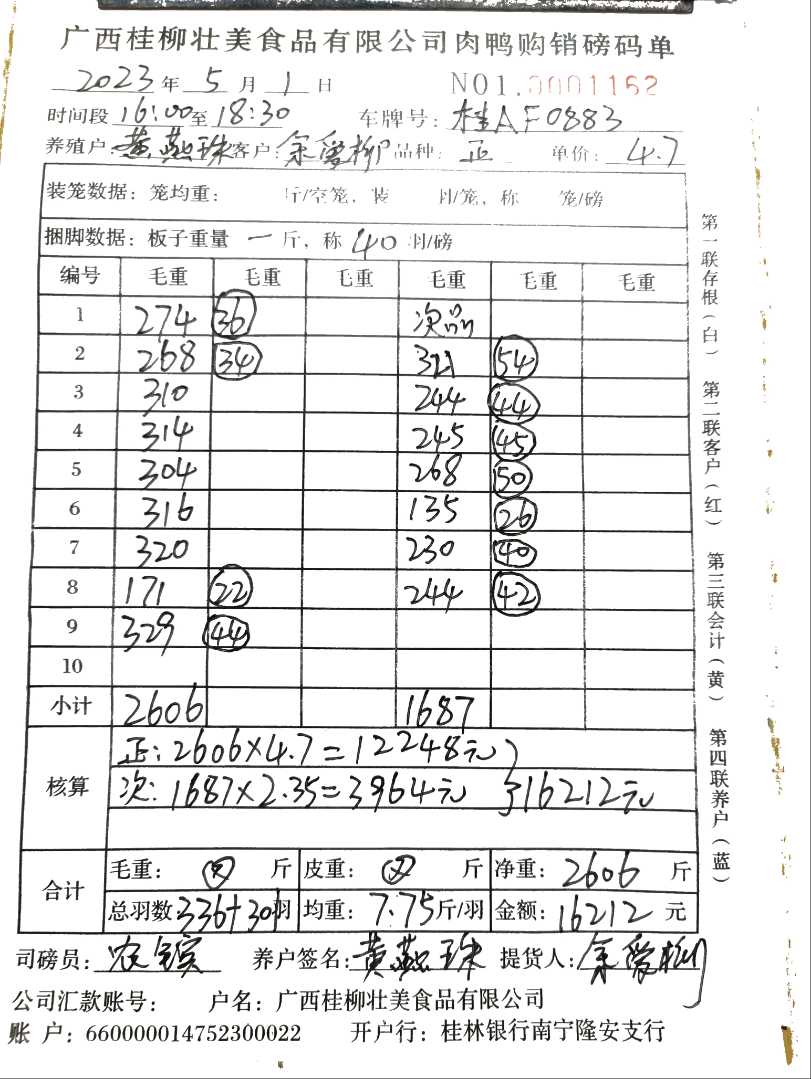 广西桂柳壮美食品有限公司肉鸭购销磅码单
2023年5月1日 NO1.0001162
时间段16:00至18:30 车牌号:桂AF0883
养殖户:黄燕珠 客户:余爱柳 品种:正 单价:4.7
装笼数据:笼均重: 斤/空笼,装 羽/笼,称 笼/磅
捆脚数据:板子重量 一 斤,称 40 羽/磅
编号 毛重 毛重 毛重 毛重 毛重 毛重
1 274 36 次品
2 268 34 321 54
3 310 244 44
4 314 245 45
5 304 268 50
6 316 135 26
7 320 230 40
8 171 22 244 42
9 329 44
10
小计 2606 1687
核算
正:2606×4.7=12248元
次:1687×2.35=3964元 }16212元
合计
毛重: 斤 皮重: 斤 净重:2606斤
总羽数336+301羽 均重:7.75斤/羽 金额:16212元
司磅员: 养户签名:黄燕珠 提货人:余爱柳
公司汇款账号: 户名:广西桂柳壮美食品有限公司
账 户:660000014752300022 开户行:桂林银行南宁隆安支行
第一联存根(白) 第二联客户(红) 第三联会计(黄) 第四联养户(蓝)